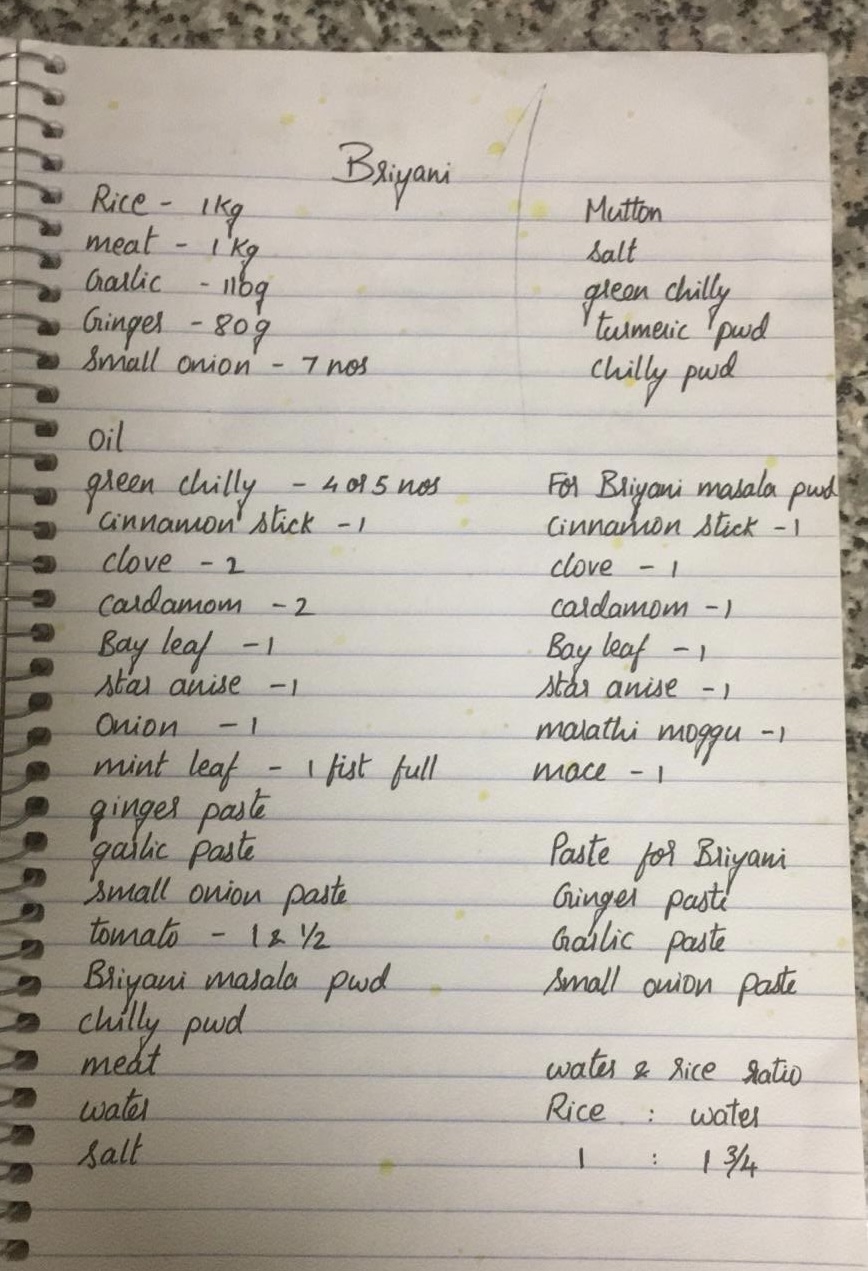 Briyani
Rice - 1kg
meat - 1 kg
Garlic - 116g
Ginger - 80g
Small onion - 7 nos
oil
green chilly - 4 or 5 nos
cinnamon stick - 1
clove - 2
cardamom - 2
Bay leaf - 1
star anise - 1
Onion - 1
mint leaf - 1 fist full
ginger paste
garlic paste
small onion paste
tomato - 1 & 1/2
Briyani masala pwd
chilly pwd
meat
water
salt
Mutton
salt
green chilly
turmeric pwd
chilly pwd
For Briyani masala pwd
cinnamon stick - 1
clove - 1
cardamom - 1
Bay leaf - 1
star anise - 1
marathi moggu - 1
mace - 1
Paste for Briyani
Ginger paste
Garlic paste
small onion paste
water & rice ratio
Rice : water
1 : 1 3/4